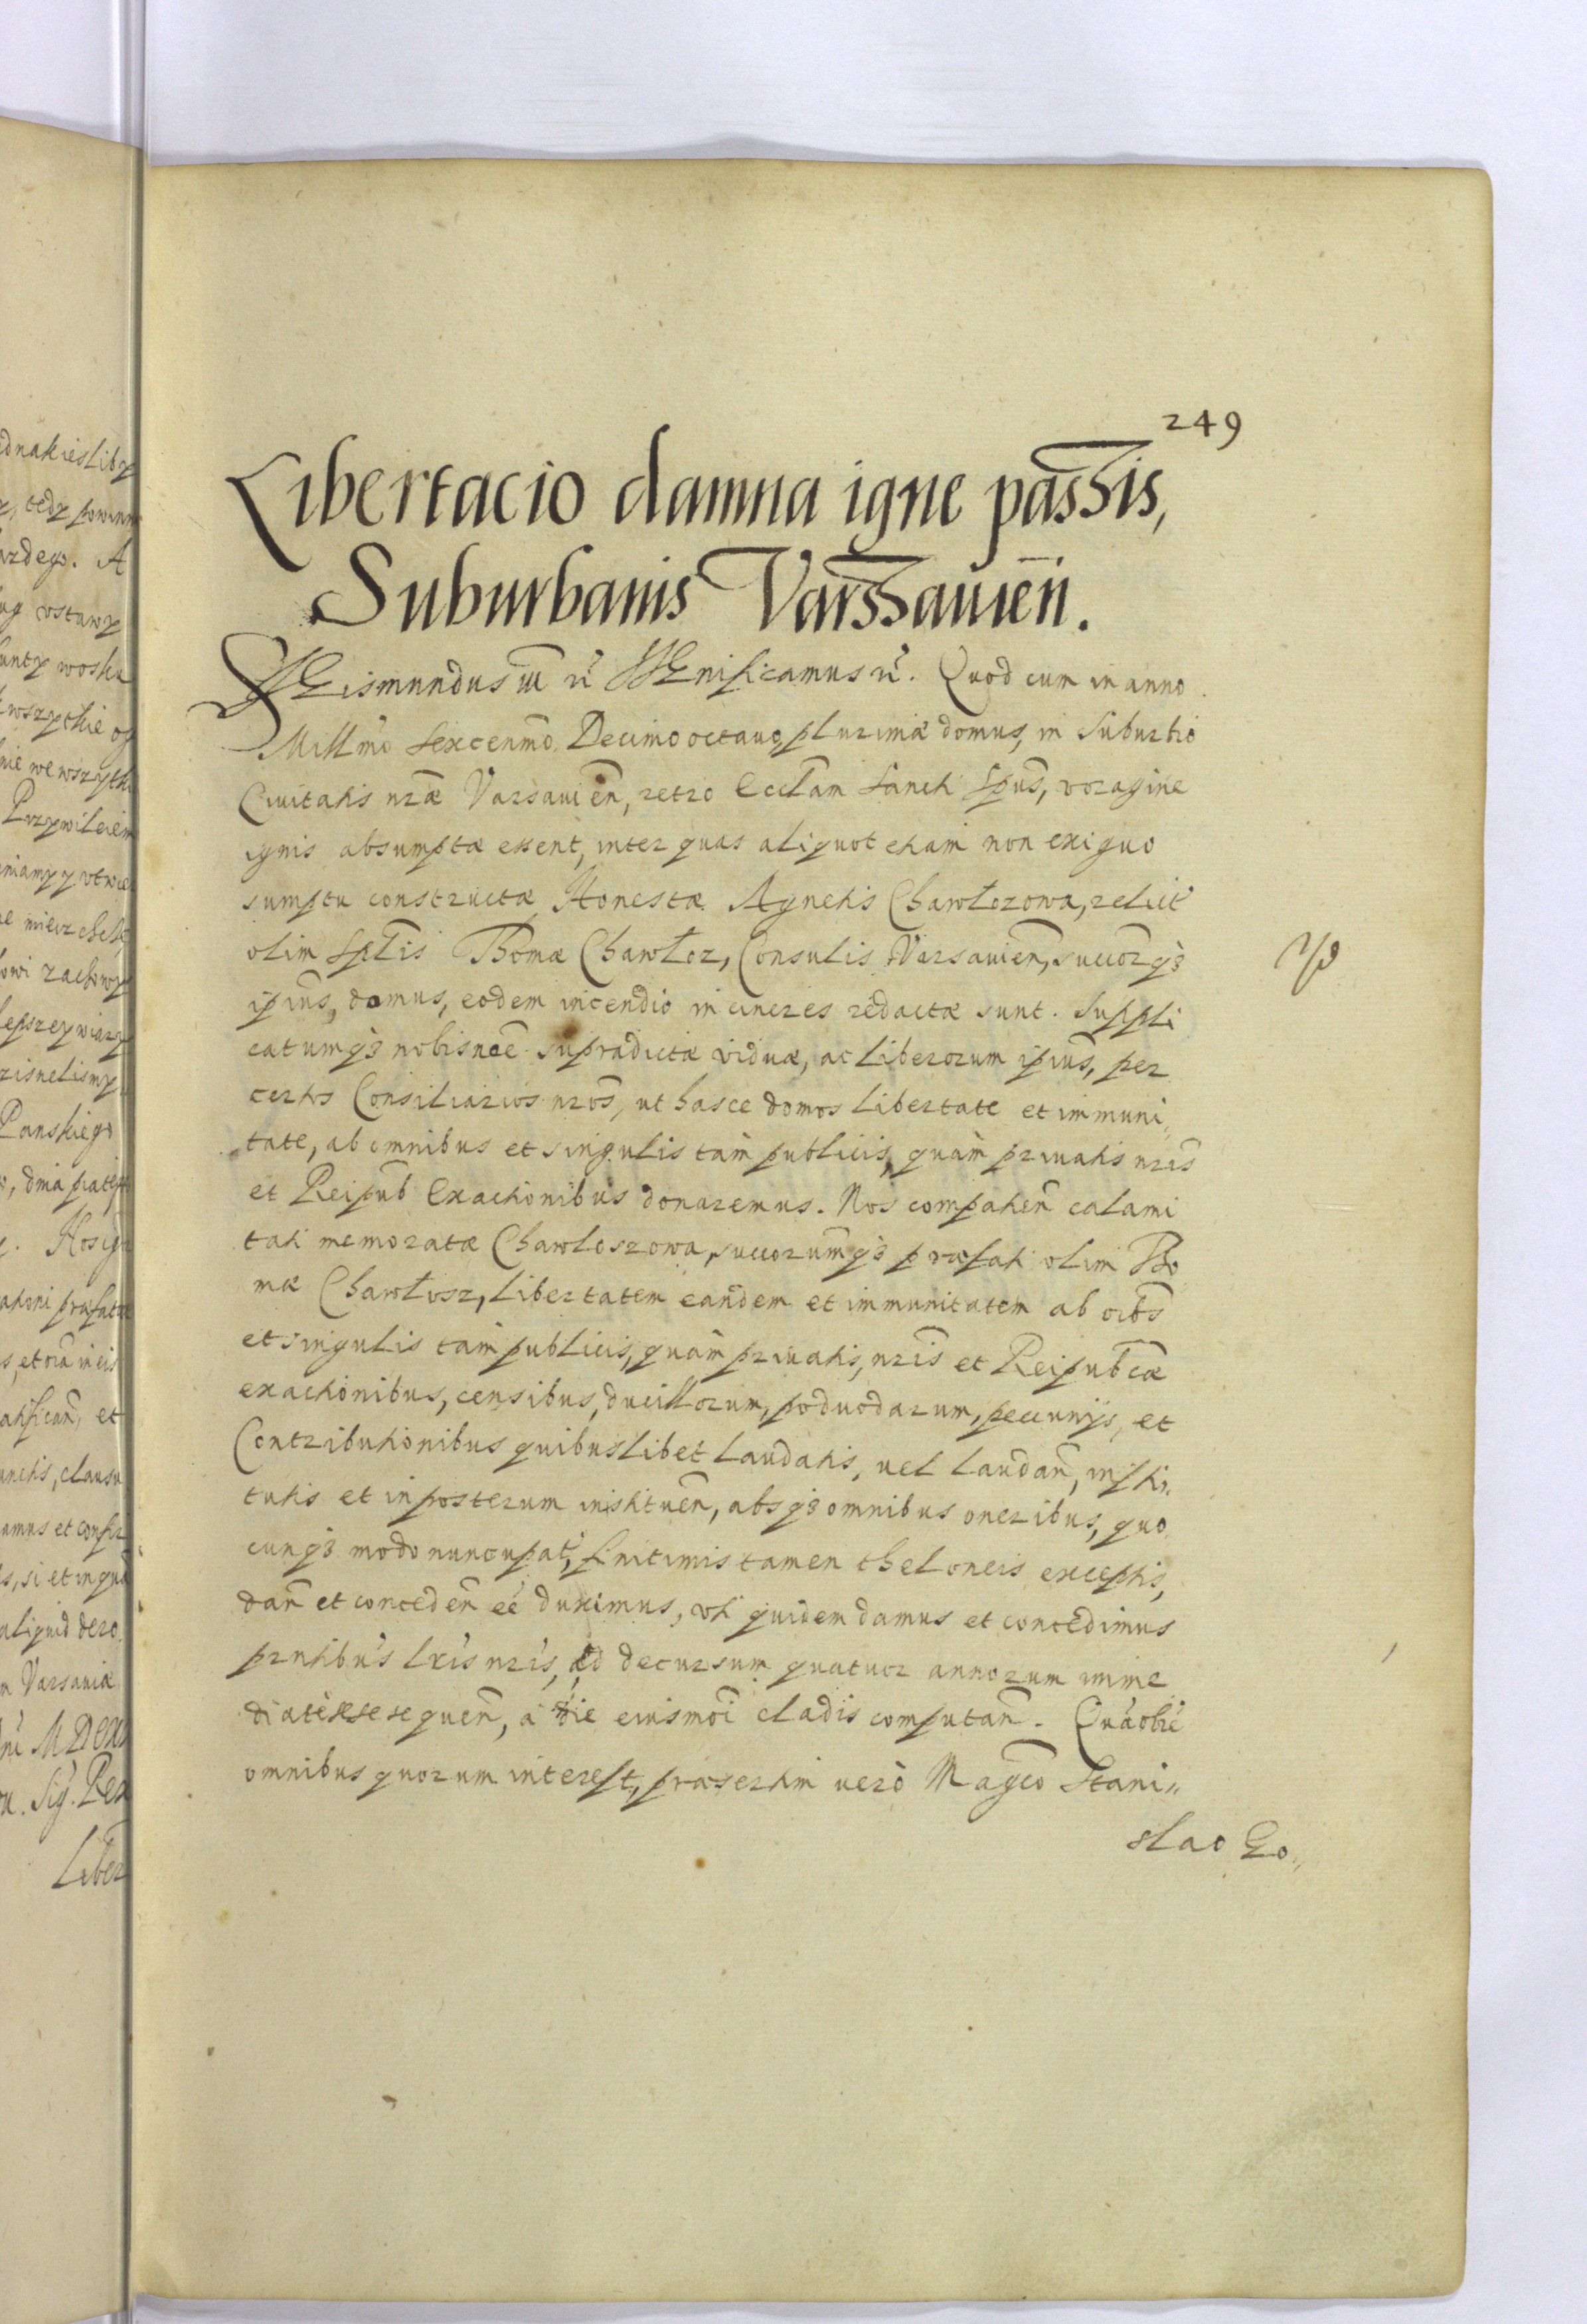 249
Libertacio damna igne passis,
Suburbanis Varssauien̄.
Sigismundus III etc̃ Significamus etc̃. Quod cum in anno
Millm̃o sexcenm̃o Decimo octauo, plurimæ domus, in Suburbio
Ciuitatis nr̃æ Varsauien̄, retro Eccl̃am Sancti Sp̃us, voragine
ignis absumptæ essent, inter quas aliquot etiam non exiguo
sumptu constructæ Honestæ Agnetis Charłozowa, relict̃
olim Sp̃l̃is Thomæ Charłoz, Consulis Varsauien̄, succor̃q3
ip̃ius, domus, eodem incendio in cineres redactæ sunt. Suppli
catumq3 nobis nõe supradictæ viduæ, ac liberorum ip̃ius, per
certos Consiliarios nr̃os, ut hasce domos libertate et immuni,,
tate, ab omnibus et singulis tam publicis, quàm priuatis nr̃is
et Reipub̃ Exactionibus donaremus. Nos compatien̄ calami
tati memoratæ Charłoszowa, succorum̃q3 præfati olim Tho
mæ Charłosz, libertatem eandem et immunitatem ab oĩbs
et singulis tam publicis, quàm priuatis, nr̃is et Reipub̃cæ
exactionibus, censibus, ducillorum, poduodarum, pecunijs, et
Contributionibus quibuslibet laudatis, uel laudan̄, insti,,
tutis et in posterum instituen̄, absq3 omnibus oneribus, quo
cunq3 modo nuncupat̃, finitimis tamen theloneis exceptis,
dan̄ et conceden̄ eẽ duximus, vti quidem damus et concedimus
prntibũs lr̃is nr̃is, ad decursum quatuor annorum imme
diatè sese sequen̄, à die eiusmõi cladis computan̄. Quãobrẽ
omnibus quorum interest, præsertim uerò Mag̃co Stani,,
slao Go,,